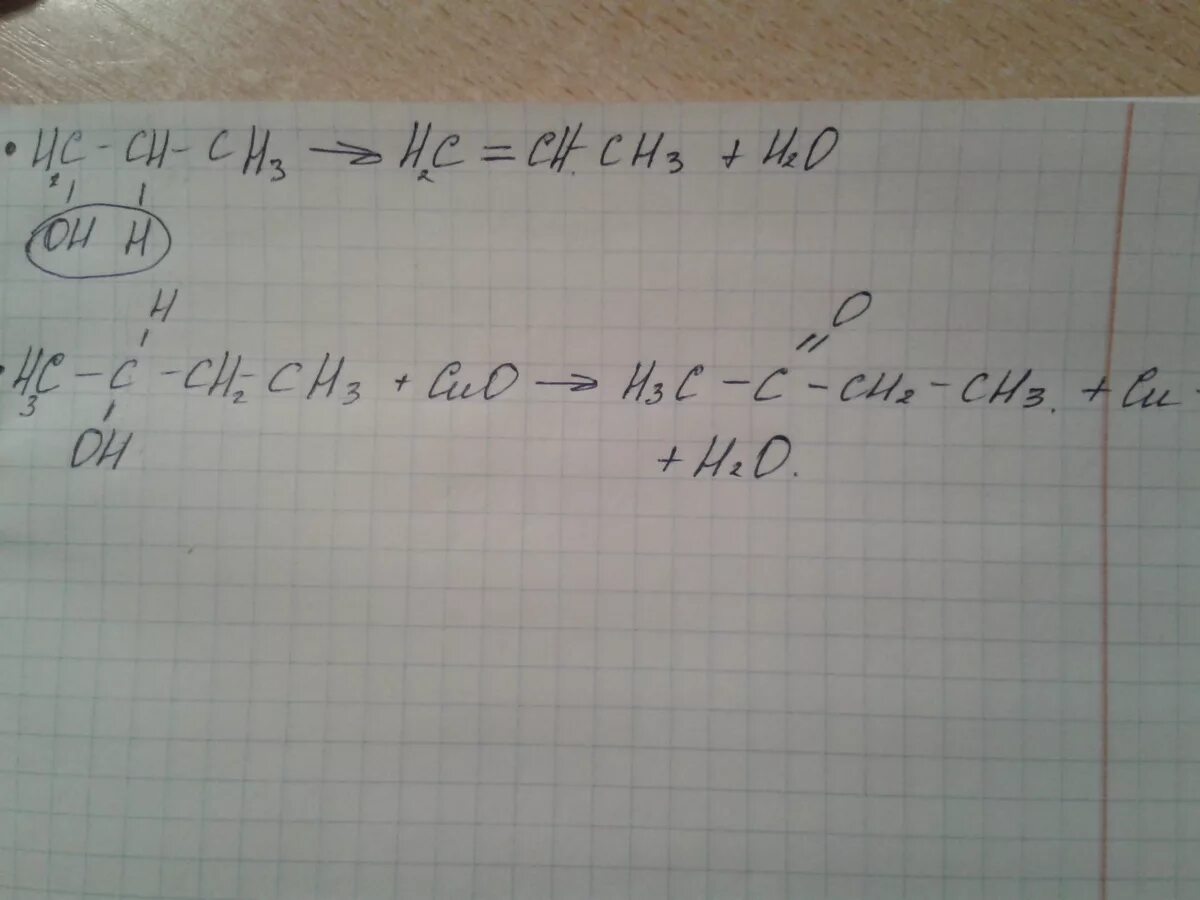 • H₂C - CH - CH₃ → H₂C = CH . CH₃ + H₂O
OH H
H
• H₃C - C - CH₂ - CH₃ + CuO → H₃C - C - CH₂ - CH₃. + Cu +
O
OH
+ H₂O.